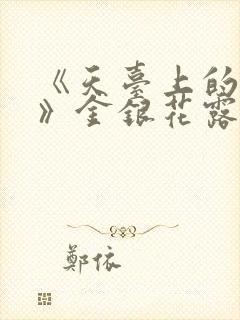 《天臺上的
》金銀花露
鄭依